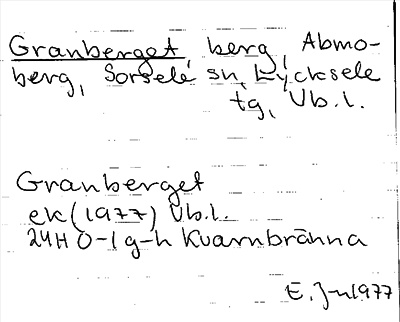 Granberget, berg, Abmo-
berg, Sorsele sn, Lycksele
tg, Vb.l.
Granberget
ek (1977) Vb.l.
24H 0-1 g-h Kvarnbränna
E. J-n 1977